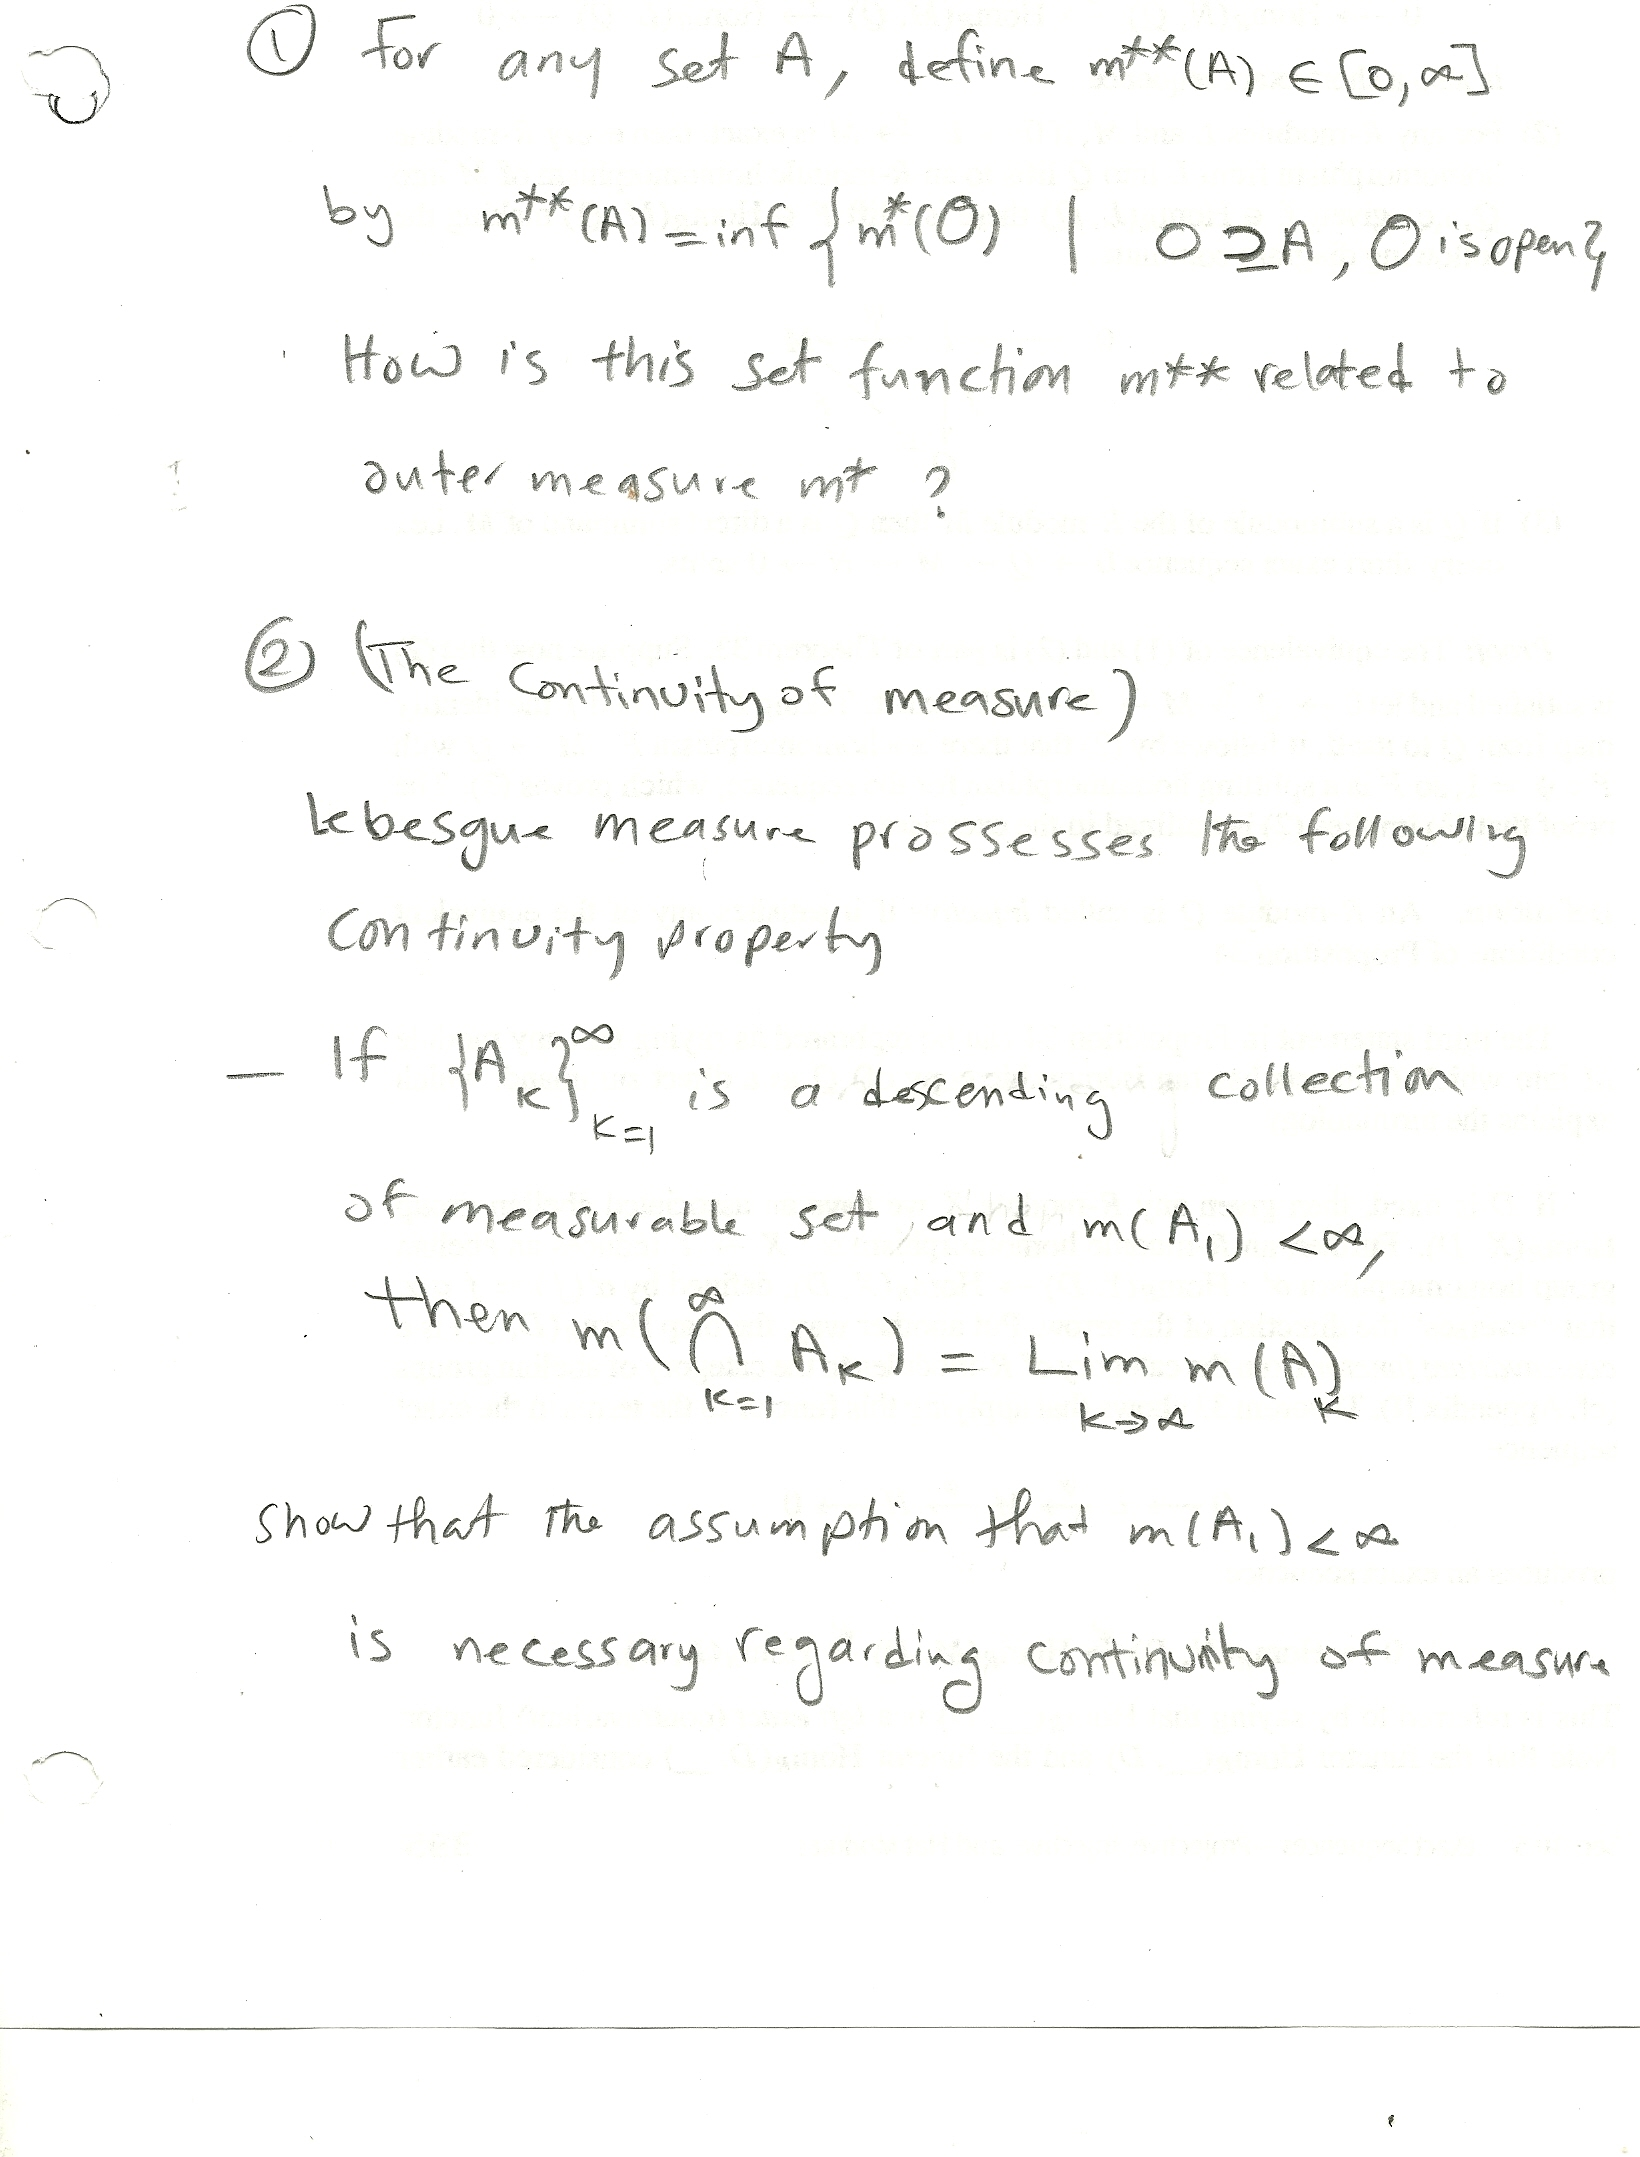 ① For any set A, define m**(A) ∈ [0,∞]
by m**(A) = inf { m*(O) | O ⊇ A, O is open }
How is this set function m** related to
outer measure m* ?
② (The Continuity of measure)
Lebesgue measure prossesses the following
Continuity property
— If {A_K}_{K=1}^∞ is a descending collection
of measurable set, and m(A₁) <∞,
then m(⋂_{K=1}^∞ A_K) = Lim_{K→∞} m(A)_K
Show that the assumption that m(A₁) < ∞
is necessary regarding continuity of measure